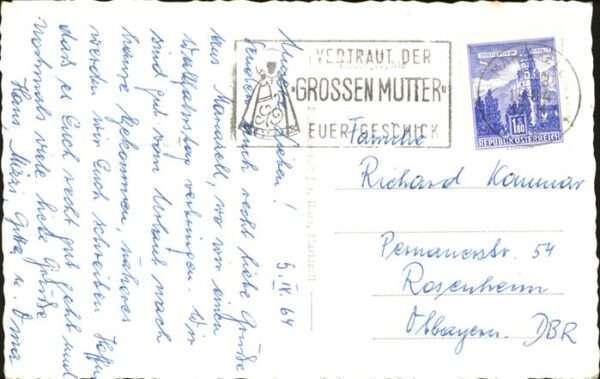 VERTRAUT DER
"GROSSEN MUTTER"
EUER GESCHICK
1.80
REPUBLIK ÖSTERREICH
5. IV. 64
Lieben!
Senden Euch recht liebe Grüße
aus Mariazell, wo wir einen
verbringen. Wir
sind gut vom Urlaub nach
Hause gekommen, näheres
werden wir Euch schreiben. Hoffe
daß es Euch recht gut geht und
nochmals viele liebe Grüße
Hans, Mizzi, Gitta u. Oma
Familie
Richard
54
Rosenheim
Obbayern. DBR